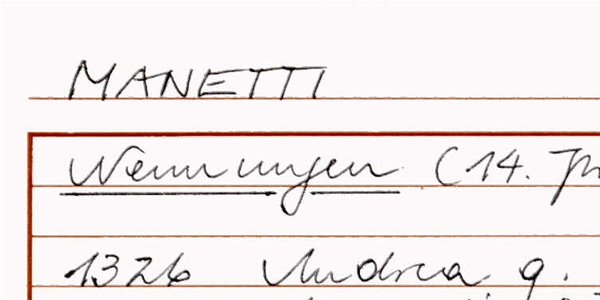 MANETTI
Nennungen (14. Jh
1326 Andrea q.